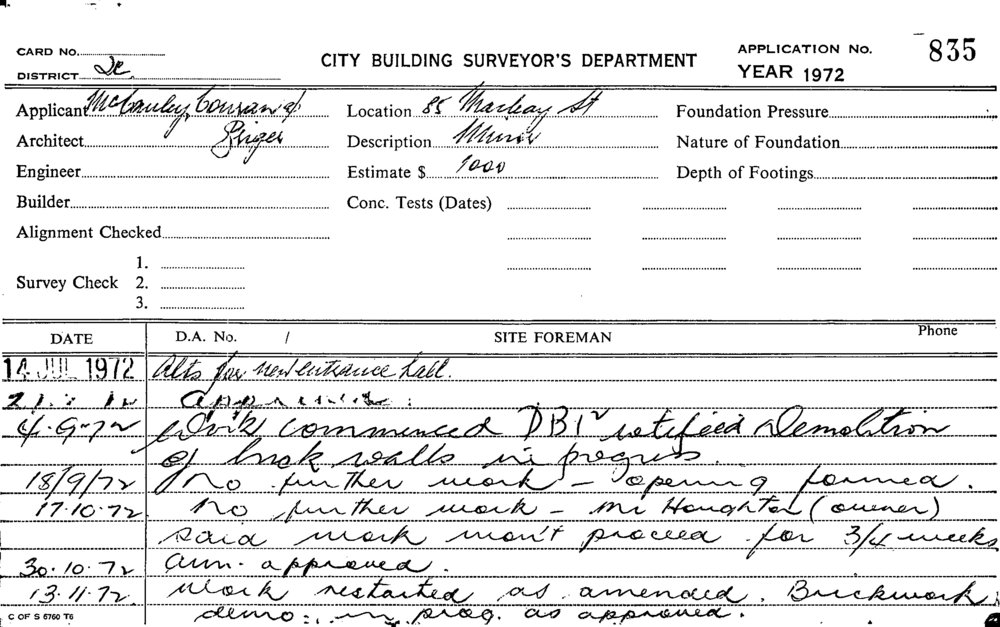 CARD No.
DISTRICT
CITY BUILDING SURVEYOR'S DEPARTMENT
APPLICATION No. 835
YEAR 1972
Applicant McCauley, Conran &
Location 85 Macleay St
Foundation Pressure
Architect
Description Minor
Nature of Foundation
Engineer
Estimate $ 1000
Depth of Footings
Builder
Conc. Tests (Dates)
Alignment Checked
Survey Check
1.
2.
3.
DATE
D.A. No. /
SITE FOREMAN
Phone
14 JUL 1972 Alts for new entrance hall.
4.9.72 Work commenced DBI notified Demolition
of brick walls in progress.
18/9/72 No further work – opening formed.
17.10.72. No further work – Mr Houghton (owner)
said work won't proceed for 3/4 weeks
30.10.72 Am. approved.
13.11.72. Work restarted as amended. Brickwork
demo: in prog. as approved.
C OF S 5760 T6